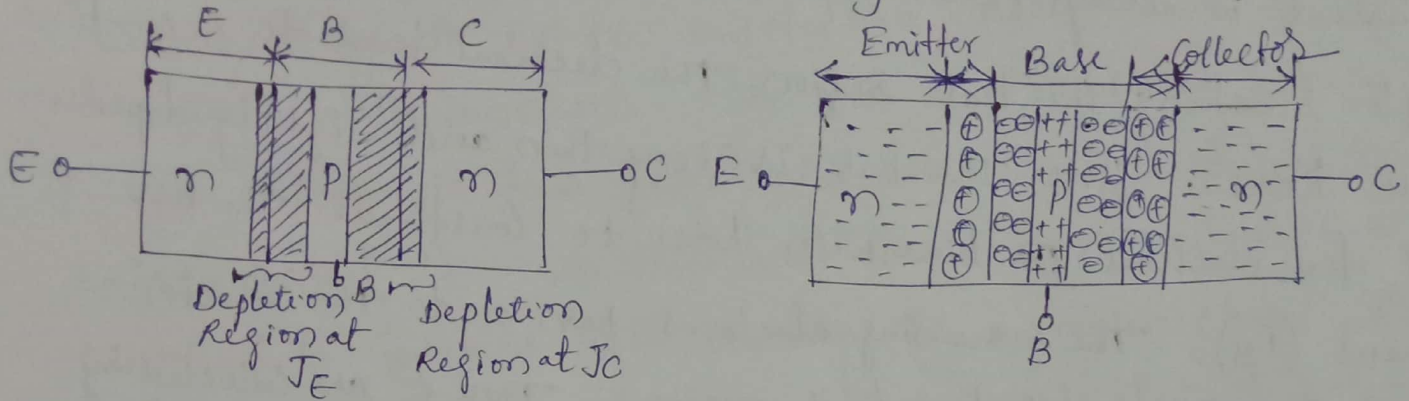 E B C
E n p n C
B
Depletion
Region at
JE
Depletion
Region at JC
Emitter Base Collector
E n p n C
B